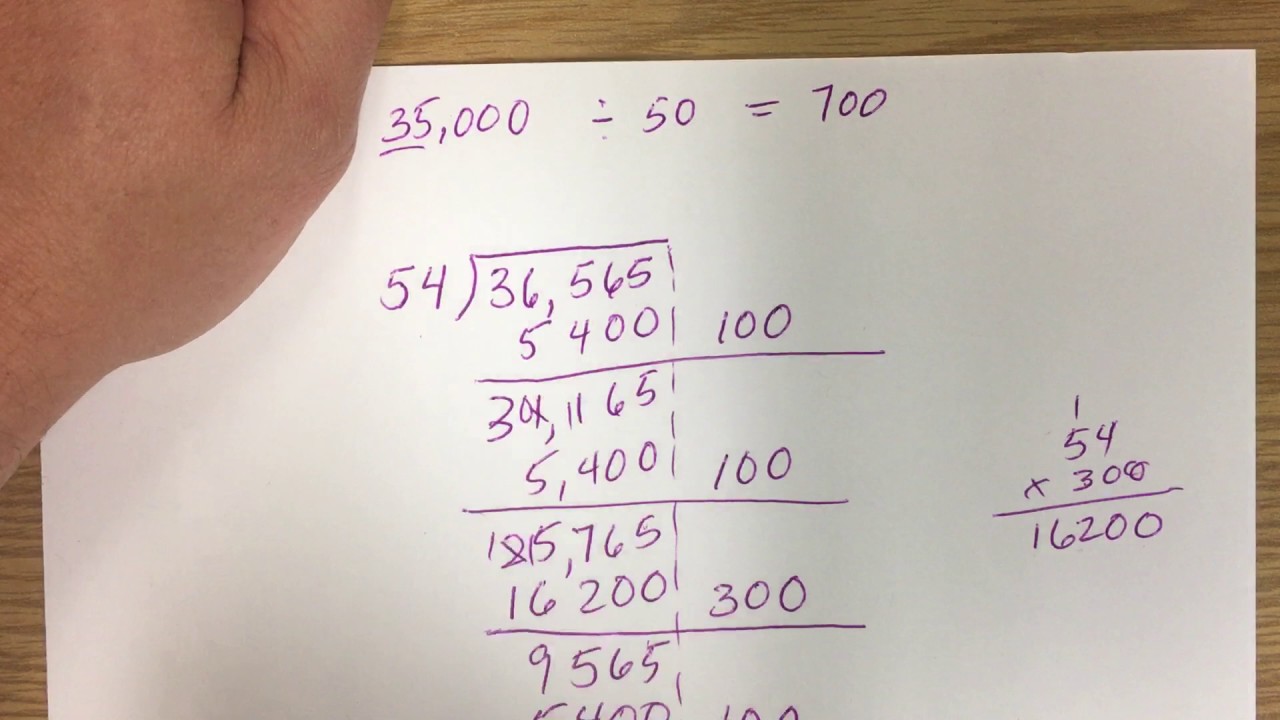 35,000 ÷ 50 = 700
54)36,565
5400 100
31,165
5,400 100
25,765
16200 300
9565
5400 100
1
54
× 300
16200